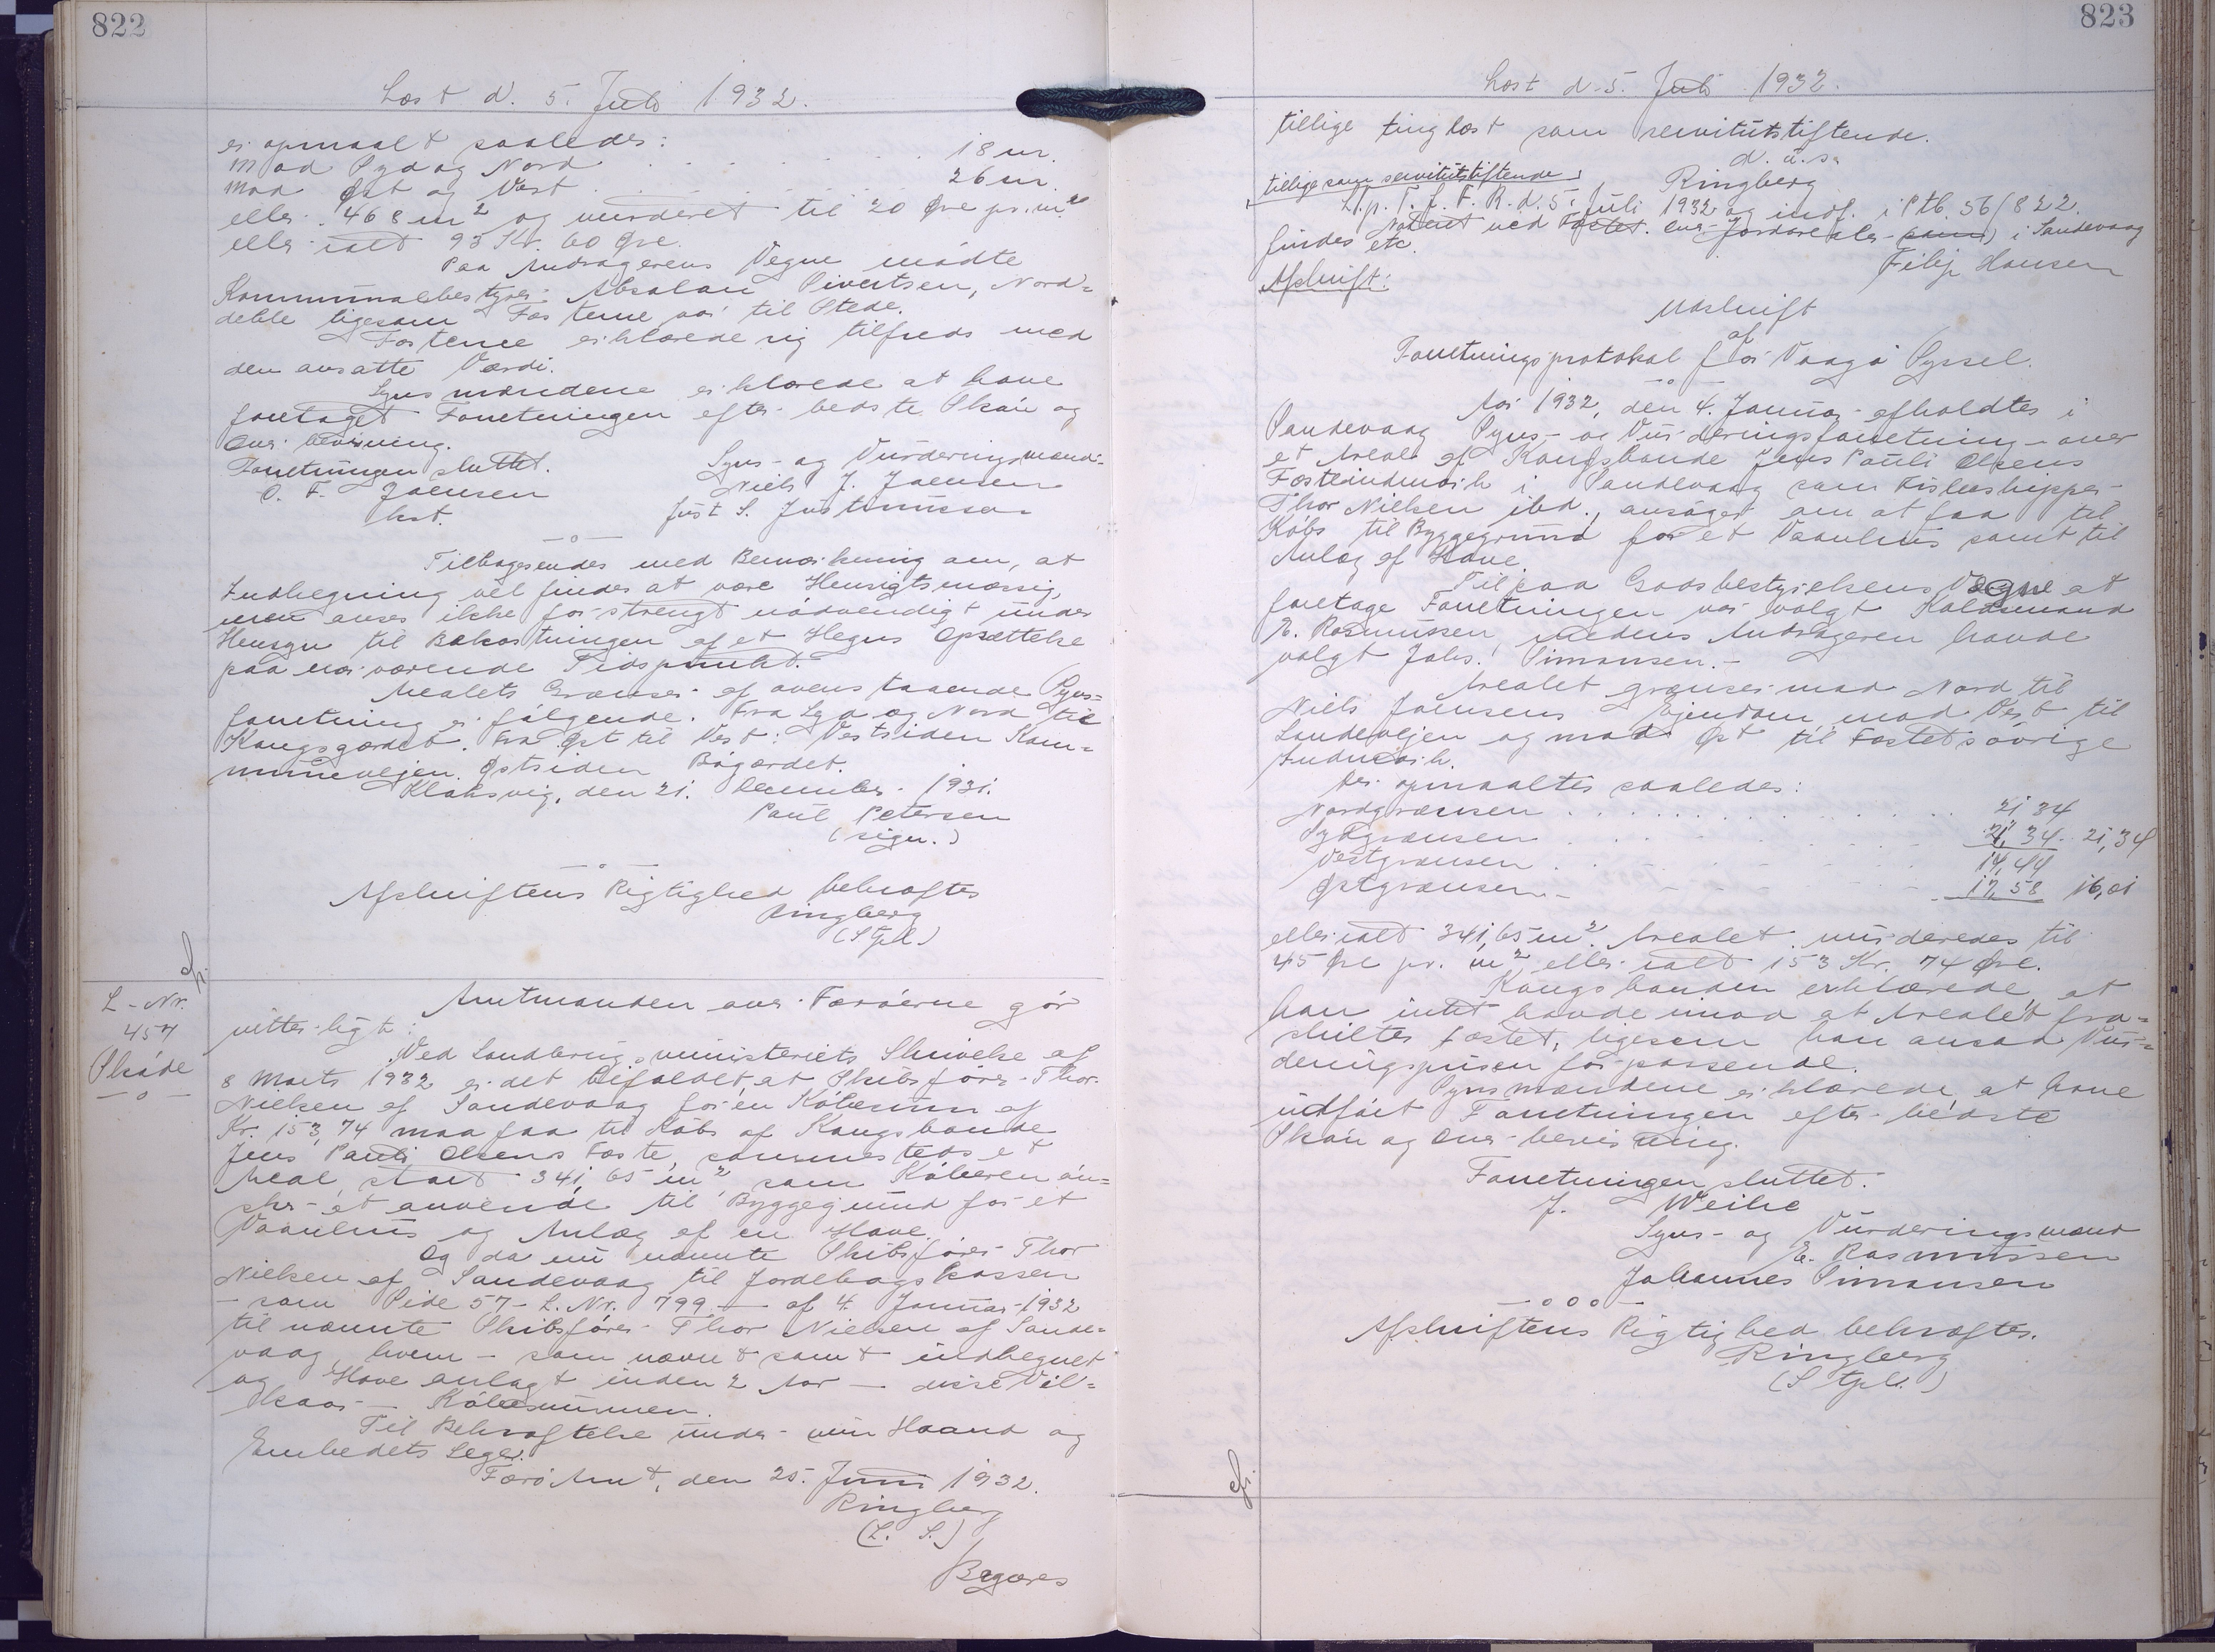 822
Læst d. 5. Juli 1932.
er opmaalt saaledes:
Mod Syd og Nord . . . . . . . 18 m.
Mod Øst og Vest . . . . . . . 26 m.
eller 468 m² og vurderet til 20 Øre pr. m²
eller ialt 93 Kr. 60 Øre.
Paa Andragerens Vegne mødte
Kommunalbestyrer Absalon Sivertsen, Nord=
deble ligesom Fæsterne var til Stede.
Fæsterne erklærede sig tilfreds med
den ansatte Værdi.
Synsmændene erklærede at have
foretaget Forretningen efter bedste Skøn og
Overbevisning.
Forretningen sluttet.
Syns- og Vurderingsmænd:
O. F. Joensen
Niels J. Joensen
hst.
Just S. Justinussen
—o—
Tilbagesendes med Bemærkning om, at
Indhegning vel findes at være Hensigtsmæssig,
men anses ikke for strengt nødvendigt under
Hensyn til Bekostningen af et Hegns Opsættelse
paa nærværende Tidspunkt.
Arealets Grænser af ovenstaaende Syns=
forretning er følgende. Fra Syd og Nord til
Kongsgærdet. Fra Øst til Vest: Vestsiden Kom=
munevejen. Østsiden Bøgærdet.
Klaksvig, den 21. December 1931.
Paul Petersen
(sign.)
—o—
Afskriftens Rigtighed bekræftes
Ringberg
(Stpl.)
cfr.
L-Nr.
457
Skøde
—o—
Amtmanden over Færøerne gør
vitterligt:
Ved Landbrugsministeriets Skrivelse af
8 Marts 1932 er det bifaldet, at Skibsfører Thor
Nielsen af Sandevaag for en Købesum af
Kr. 153,74 maa faa til Købs af Kongsbonde
Jens Pauli Olsens Fæste, sammesteds et
Areal, stort 341,65 m² som Køberen øn=
sker at anvende til Byggegrund for et
Vaanhus og Anlæg af en Have.
Og da nu nævnte Skibsfører Thor
Nielsen af Sandevaag til Jordebogskassen
— som Side 57 - L. Nr. 799 — af 4. Januar 1932
til nævnte Skibsfører Thor Nielsen af Sande=
vaag, hvem — som nævnt samt indhegnet
og Have anlagt inden 2 Aar — disse Vil=
kaar — Købesummen.
Til Bekræftelse under min Haand og
Embedets Segl.
Færø Amt, den 25. Juni 1932.
Ringberg
(L. S.)
Begæres
823
Læst d. 5. Juli 1932.
tillige tinglæst som servitutstiftende.
d. u. s.
Ringberg
tillige som servitutstiftende
L. p. T. f. F. R. d. 5. Juli 1932 og indf. i Ptb. 56/822.
Noteret ved Fæstet. i Sandevaag
findes etc.
Filip Hansen
Afskrift:
Udskrift
af
Forretningsprotokol for Vaagø Syssel.
—o—
Aar 1932, den 4. Januar afholdtes i
Sandevaag Syns- og Vurderingsforretning over
et Areal af Kongsbonde Jens Pauli Olsens
Fæsteindmark i Sandevaag som Fiskeskipper
Thor Nielsen ibd., ansøger om at faa til
Købs til Byggegrund for et Vaanhus samt til
Anlæg af Have.
Til paa Godsbestyrelsens Vegne at
foretage Forretningen var valgt Kaldsmand
E. Rasmussen, medens Andrageren havde
valgt Johs. Simonsen.—
Arealet grænser mod Nord til
Niels Joensens Ejendom, mod Vest til
Landevejen og mod Øst til Fæstets øvrige
Indmark.
Der opmaaltes saaledes:
Nordgrænsen . . . . . . . 21 34
Sydgrænsen . . . . . . . 21,34 . 21,34
Vestgrænsen . . . . . . . 14,44
Østgrænsen . . . . . . . 17,58 16,01
eller ialt 341,65 m². Arealet vurderedes til
45 Øre pr. m² eller ialt 153 Kr. 74 Øre.
Kongsbonden erklærede, at
han intet havde imod at Arealet fra=
skiltes Fæstet, ligesom han ansaa Vur=
deringsprisen for passende.
Synsmændene erklærede, at have
udført Forretningen efter bedste
Skøn og Overbevisning.
Forretningen sluttet.
J. Weihe
Syns- og Vurderingsmænd
E. Rasmussen
Johannes Simonsen
—ooo—
Afskriftens Rigtighed bekræftes.
Ringberg
(Stpl.)
cfr.